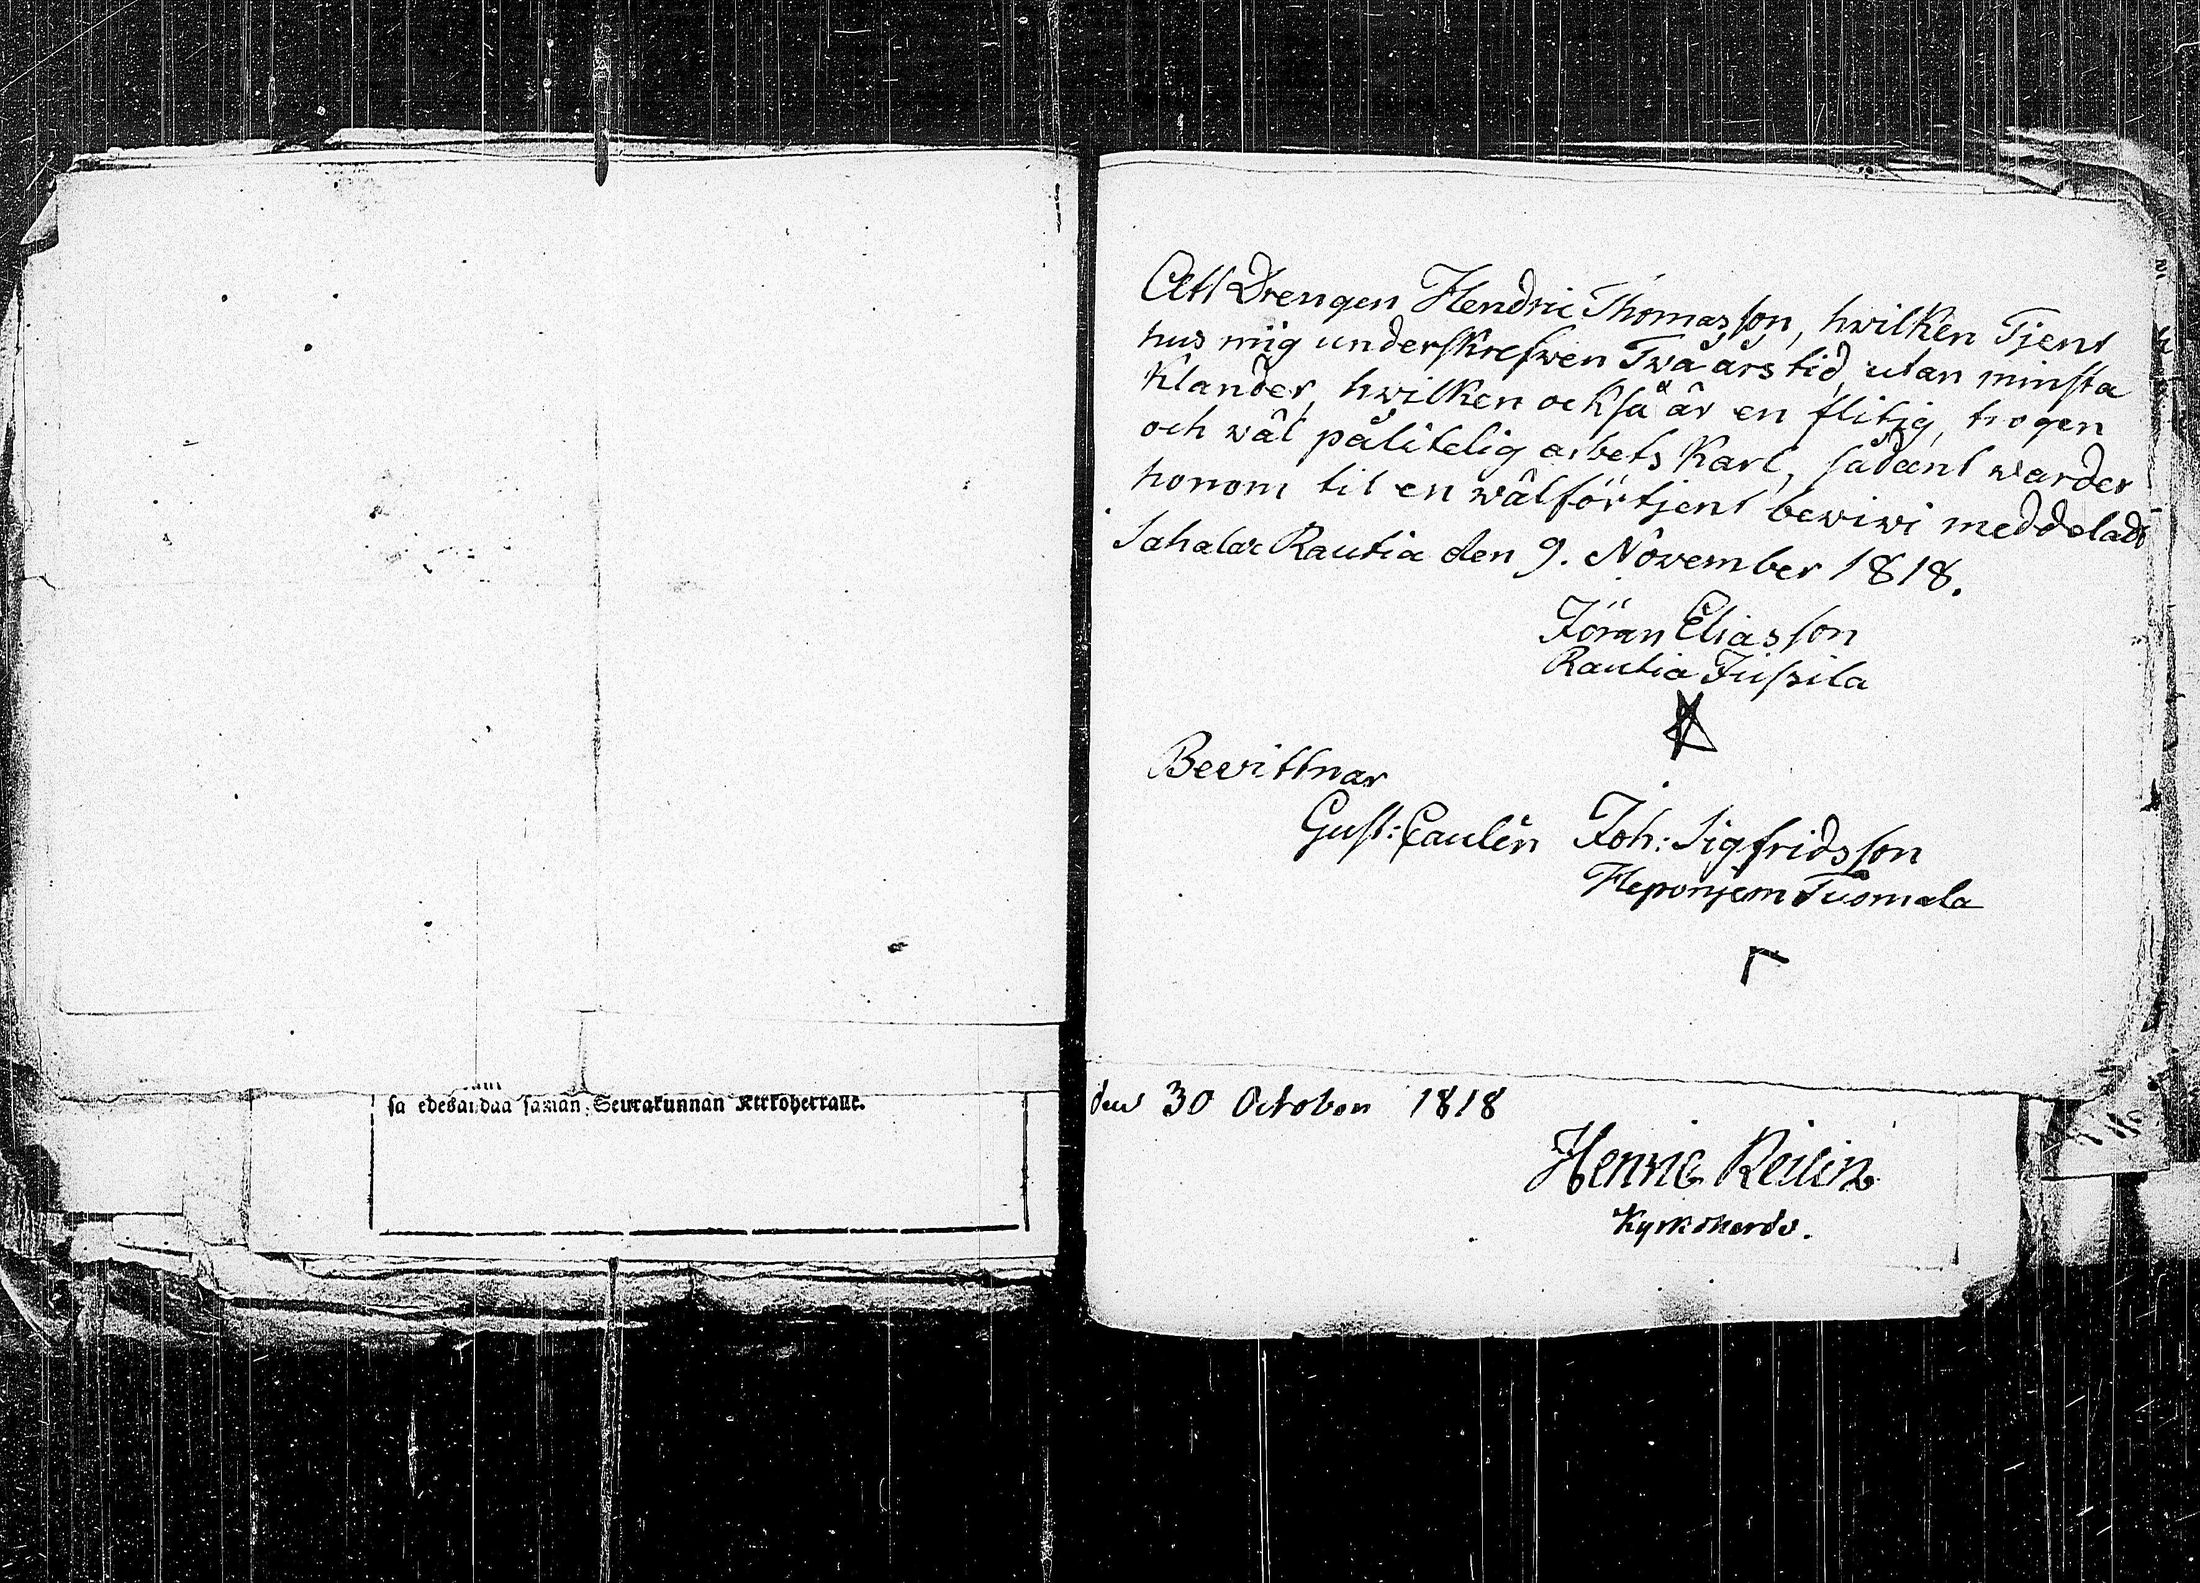 sa edesandaa saman Seurakunnan Kirkoherralle.
Att Drengen Hendric Thomasson, hwilken Tjent
hus mig underskrefwen Twå års tid, utan minsta
Klander, hwilken också är en flitig, trogen
och wäl pålitelig arbets Karl, sådant warder
honom til en wälförtjent bewiwi meddeladt
Sahalax Rautia den 9. November 1818.
Jöran Eliasson
Rautia Jussila
Bewittnar
Gust: Caulén Joh: Sigfridsson
Heponjem Tuomala
den 30 October 1818
Henric Reilin
Kyrkoherde.